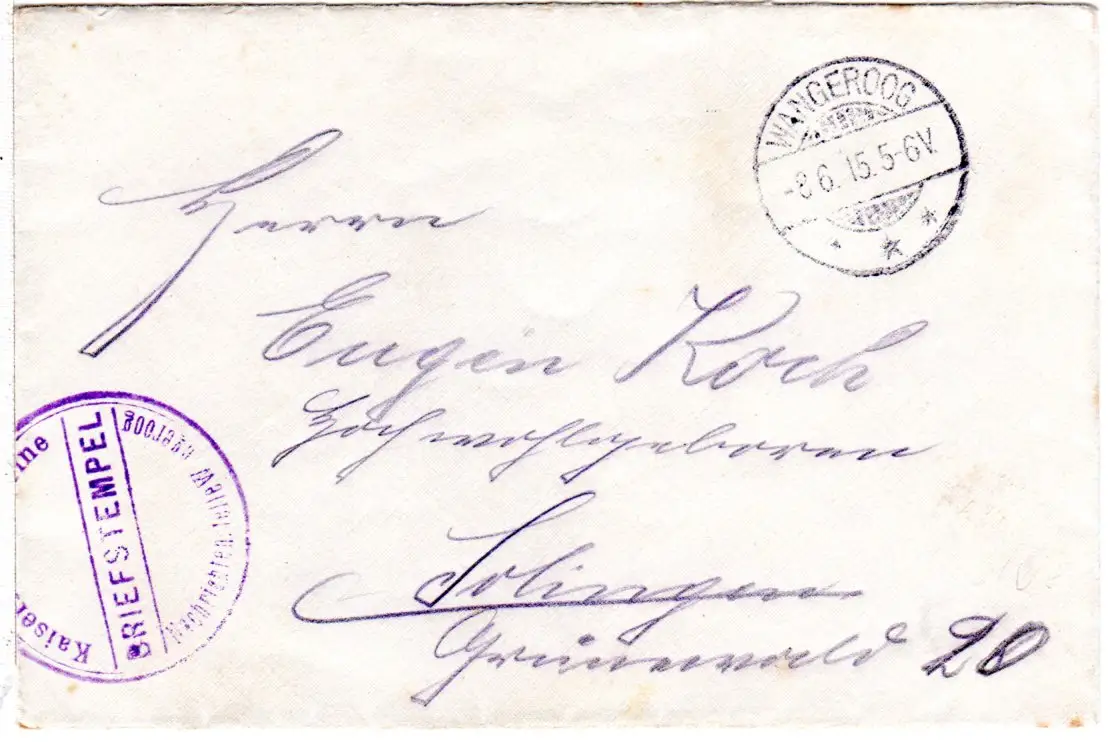 WANGEROOG
-8.6.15.5-6V.
Herrn
Eugen Koch
Hochwohlgeboren
Solingen
Grünewald 20
Kaiser ine
BRIEFSTEMPEL
Wangeroog